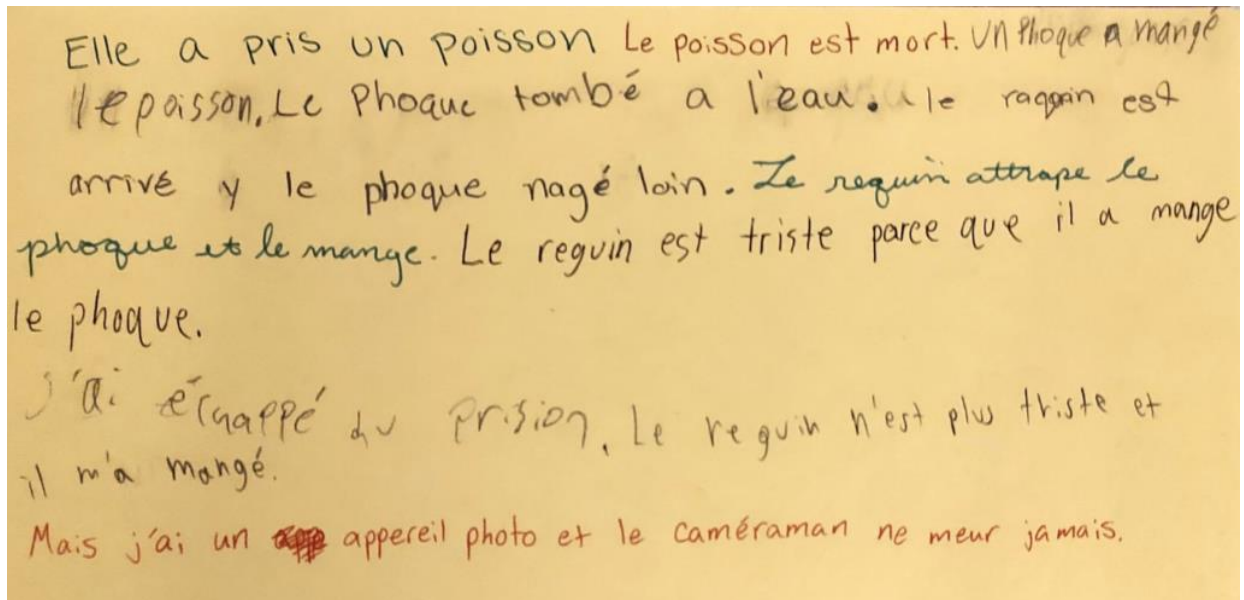 Elle a pris un poisson Le poisson est mort. Un Phoque a mangé
le poisson. Le Phoque tombé a l'eau. le raquin est
arrivé y le phoque nagé loin. Le requin attrape le
phoque et le mange. Le requin est triste parce que il a mange
le phoque.
j'ai échappé du prision. Le requin n'est plus triste et
il m'a mangé.
Mais j'ai un appereil photo et le caméraman ne meur jamais.